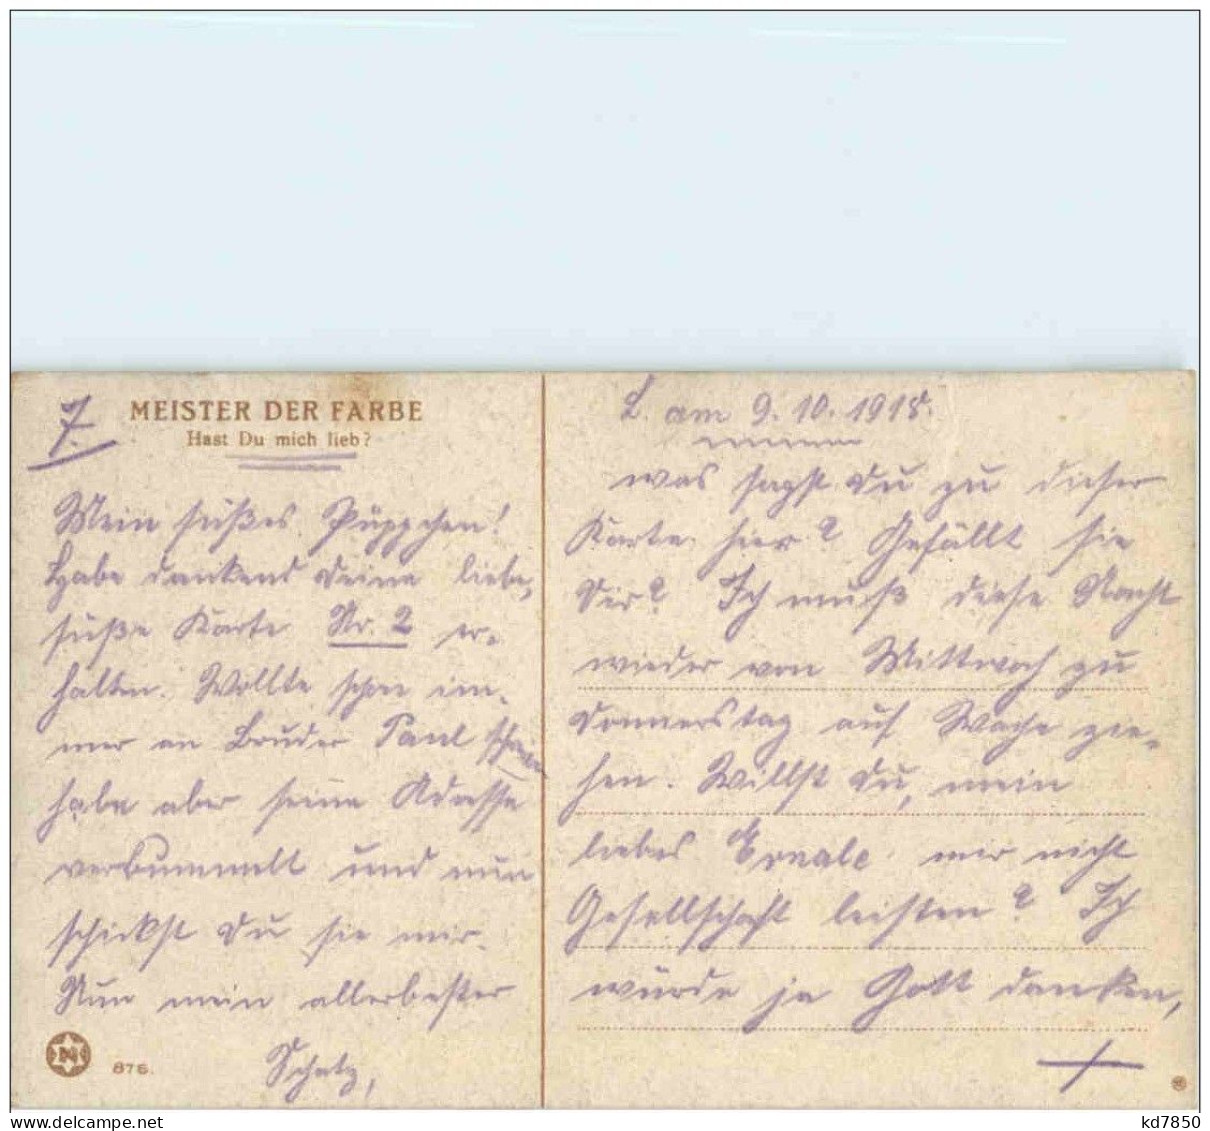 7.
MEISTER DER FARBE
Hast Du mich lieb?
Mein süßes Püppchen!
Habe dankend Deine liebe,
süße Karte Nr. 2 er-
halten. Wollte schon im-
mer an Bruder Paul
habe aber seine Adresse
verbummelt und nun
schickst Du sie mir.
Nun mein allerbester
Schatz,
876.
L. am 9.10.1918.
was sagst Du zu dieser
Karte hier? Gefällt sie
Dir? Ich muß diese Nacht
wieder von Mittwoch zu
Donnerstag auf Wache zie-
hen. Willst Du, mein
liebes mir nicht
Gesellschaft leisten? Ich
würde ja Gott danken,
kd7850